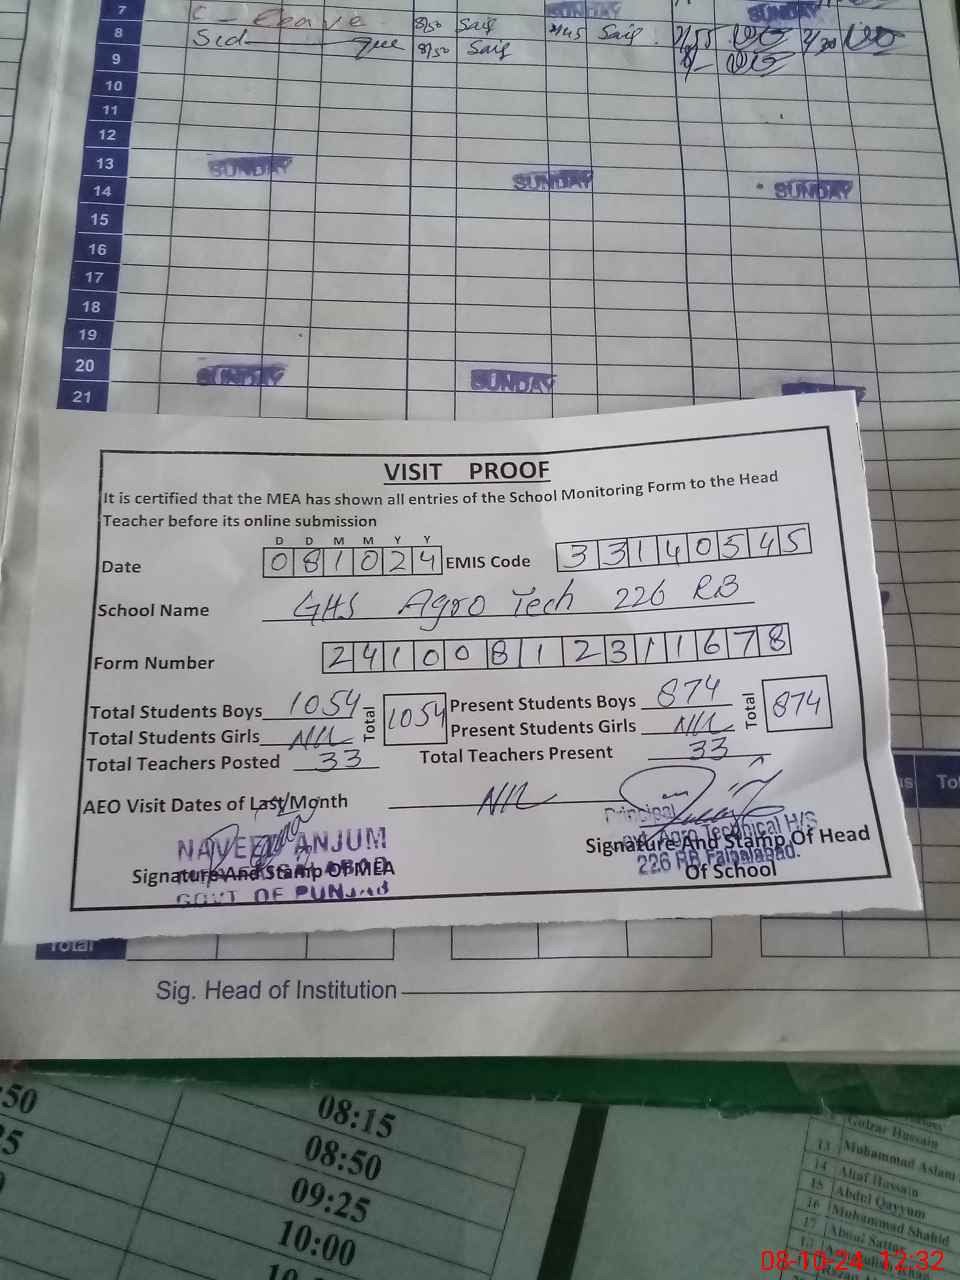 7 C - Leave SUNDAY SUNDAY
8 8/50 Saif 2/45 Saif
9 8/50 Saif
10
11
12
13 SUNDAY
14 SUNDAY SUNDAY
15
16
17
18
19
20 SUNDAY SUNDAY
21
VISIT PROOF
It is certified that the MEA has shown all entries of the School Monitoring Form to the Head
Teacher before its online submission
D D M M Y Y
Date 081024 EMIS Code 33140545
School Name GHS Agro Tech 226 RB
Form Number 24100812311678
Total Students Boys 1054 Total 1054 Present Students Boys 874 Total 874
Total Students Girls NIL Present Students Girls NIL
Total Teachers Posted 33 Total Teachers Present 33
AEO Visit Dates of Last Month NIL
NAVEED ANJUM
Signature And Stamp Of MEA
GOVT OF PUNJAB
Principal
Govt Agro Technical H/S
Signature And Stamp Of Head
226 RB Faisalabad.
Of School
Total
Sig. Head of Institution
:50 08:15
08:50
09:25
10:00
Gulzar Hussain
13 Muhammad Aslam
14 Altaf Hussain
15 Abdul Qayyum
16 Muhammad Shahid
17 Abdul Sattar
08-10-24 12:32